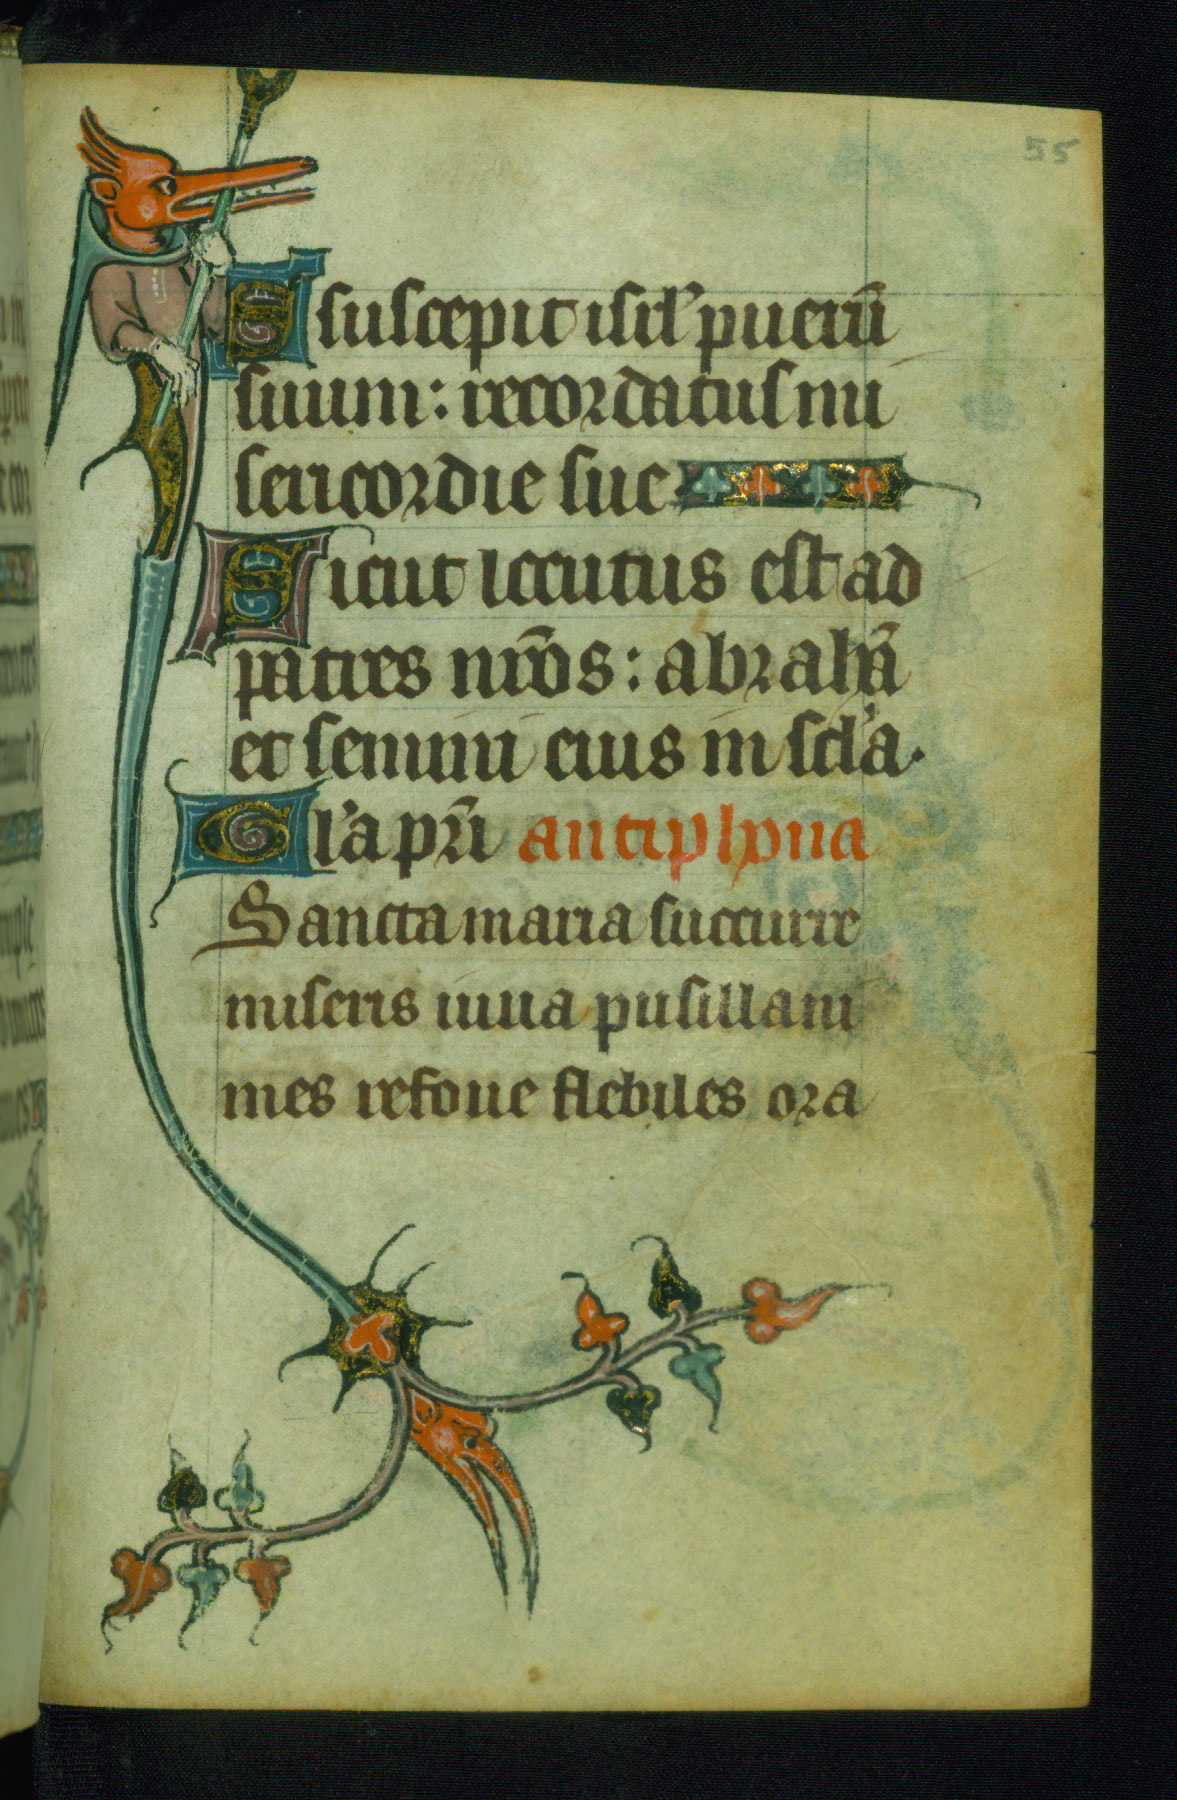 55
Suscepit isrl' puerū
suum: recordatus mi
sericordie sue
Sicut locutus est ad
patres nr̄os: abrahā
et semini eius in sc̄l'a.
Gl'a pr̄i antiphona
Sancta maria succurre
miseris iuua pusillani
mes refoue flebiles ora